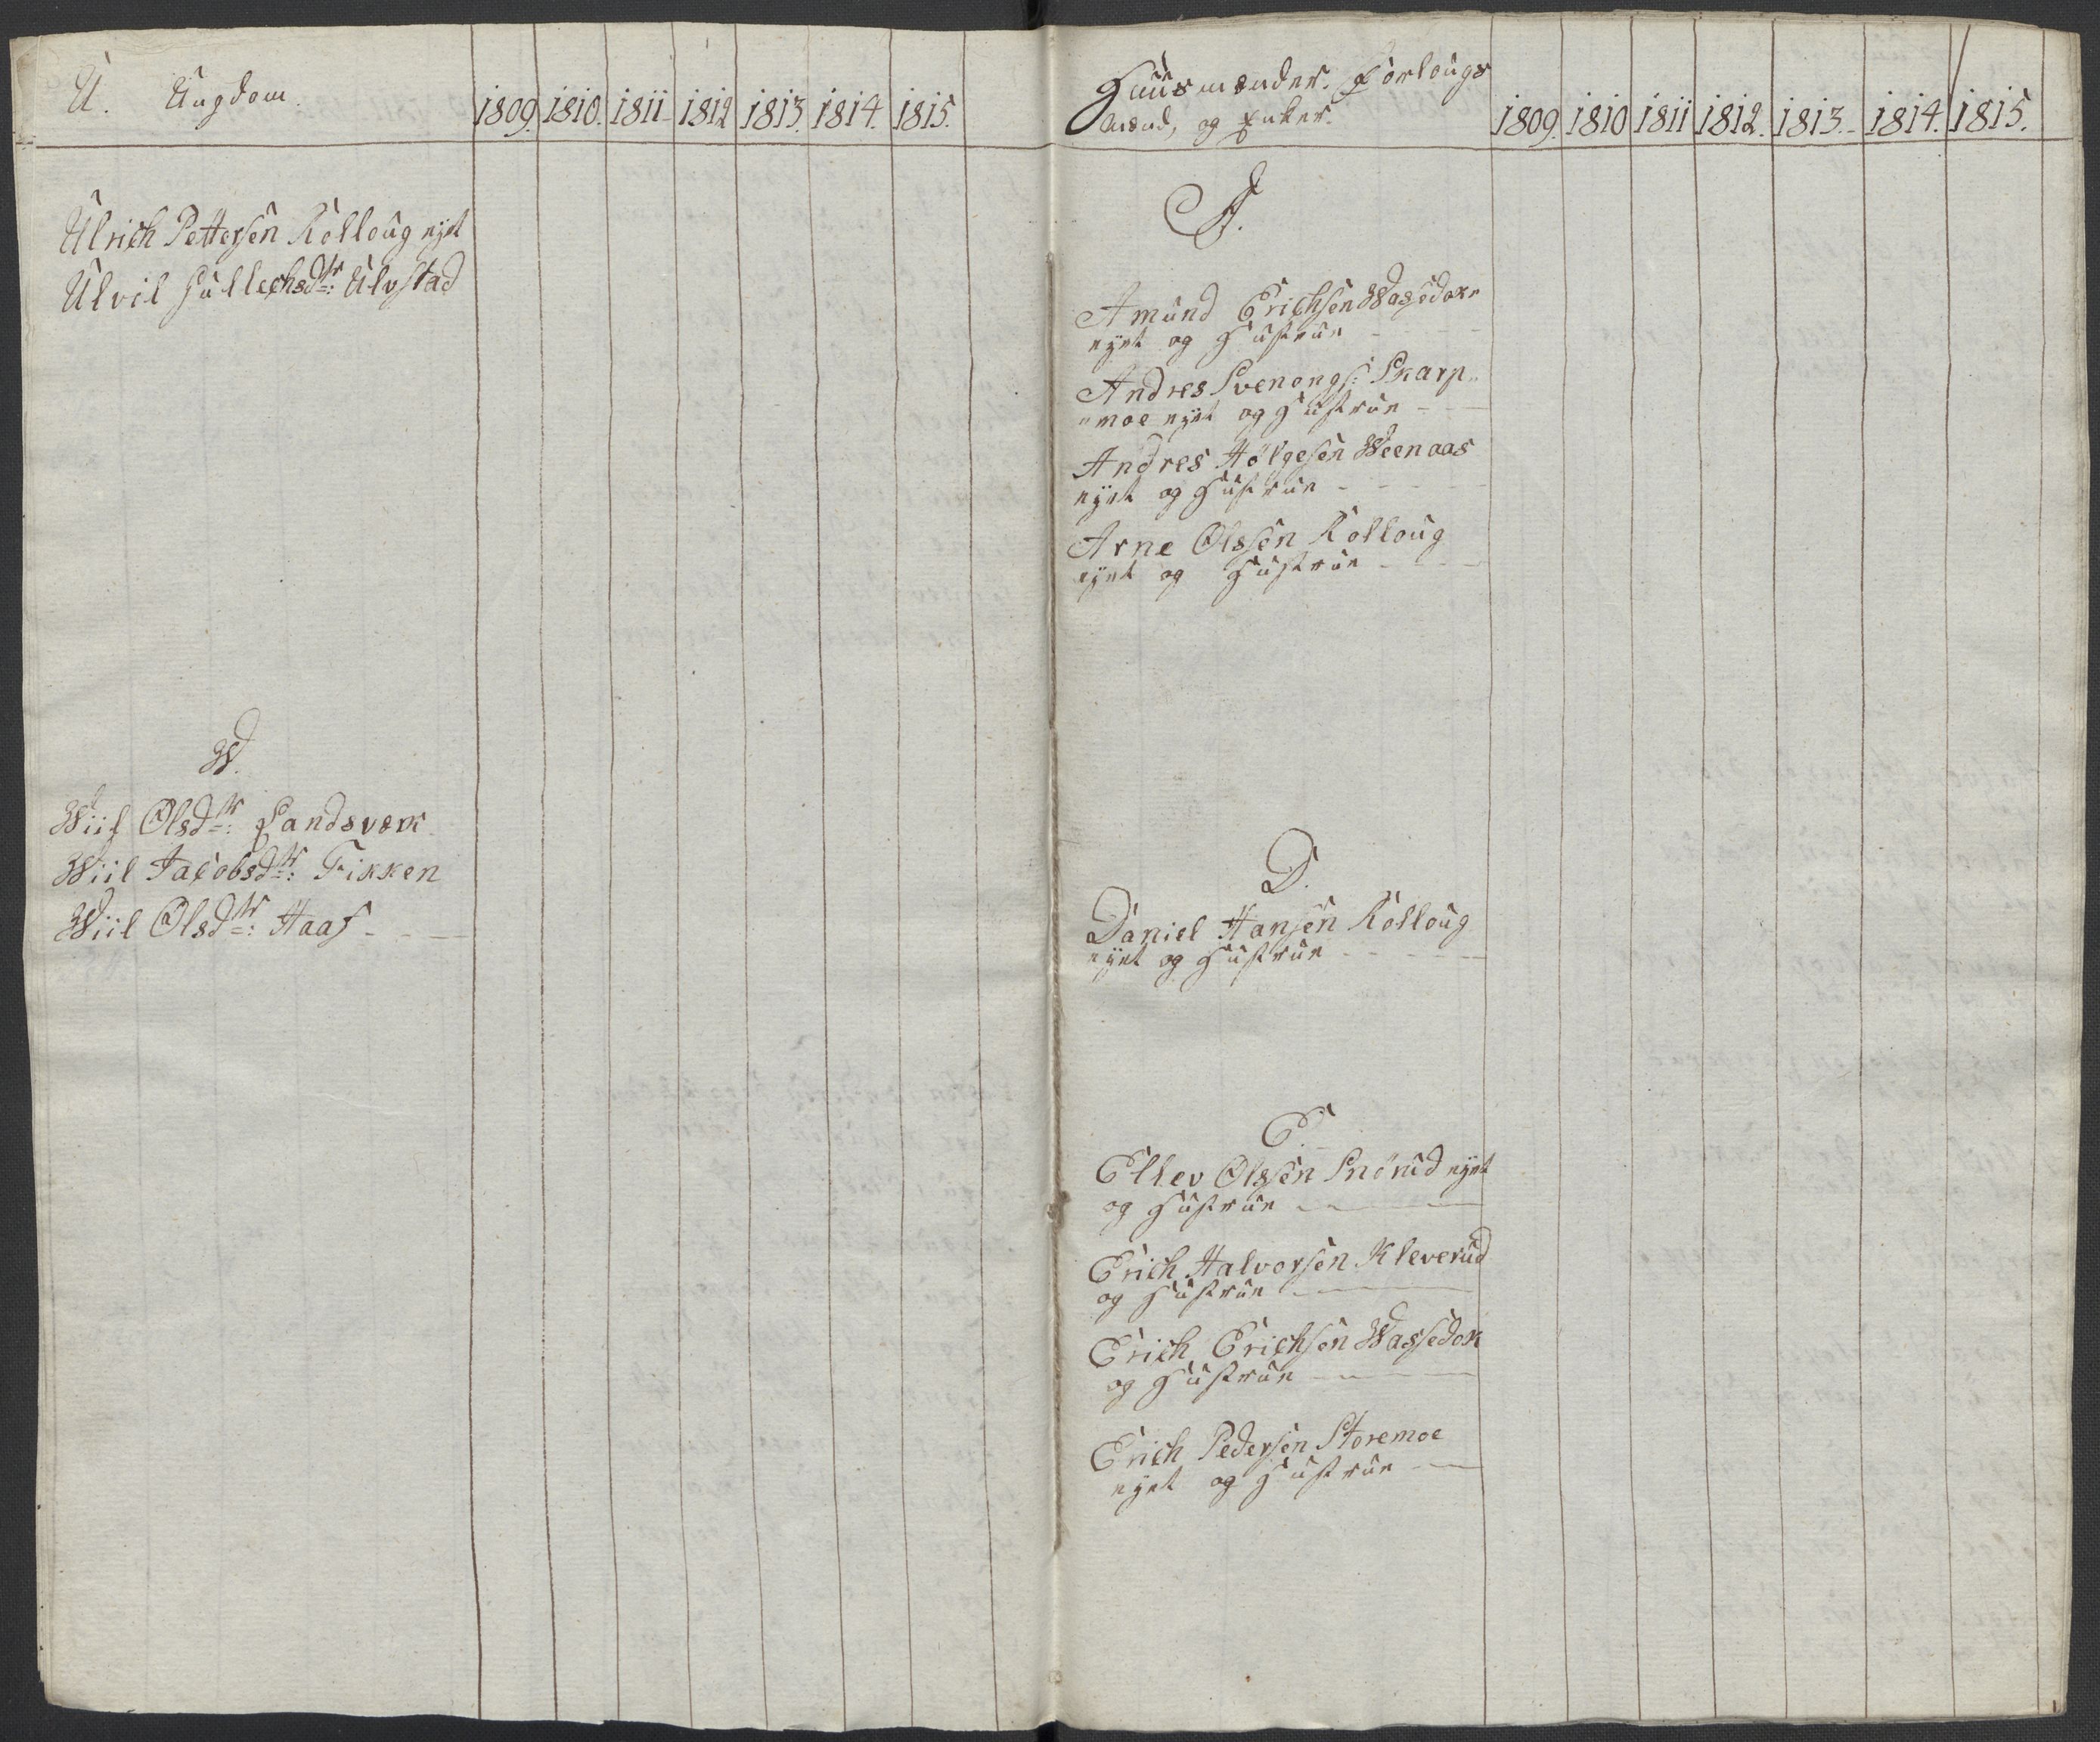 U. Ungdom.
1809. 1810. 1811 1812 1813. 1814. 1815.
Ulrich Pettersen Kolloug eyet
Ulvil Gullechsdtr: Ulvstad
W.
Wiif Olsdtr: Landsværk
Wiil Jacobsdtr: Fikken
Wiil Olsdtr: Haaf
Huusmænder. Forlougs
mænd, og Enker.
1809. 1810 1811 1812. 1813. 1814. 1815.
A.
Amund Erichsen Wassedokn
eyet og Hustrue
Andres Svenongs: Skarp„
„moe eyet og Hustrue
Andres Hølgesen Weenaas
eyet og Hustrue
Arne Olssen Kolloug
eyet og Hustrue
D.
Daniel Hansen Kolloug
eyet og Hustrue
E.
Ellev Olssen Snørud eyet
og Hustrue
Erich Halvorsen Kleverud
og Hustrue
Erich Erichsen Wassedok
og Hustrue
Erich Pedersen Storemoe
eyet og Hustrue